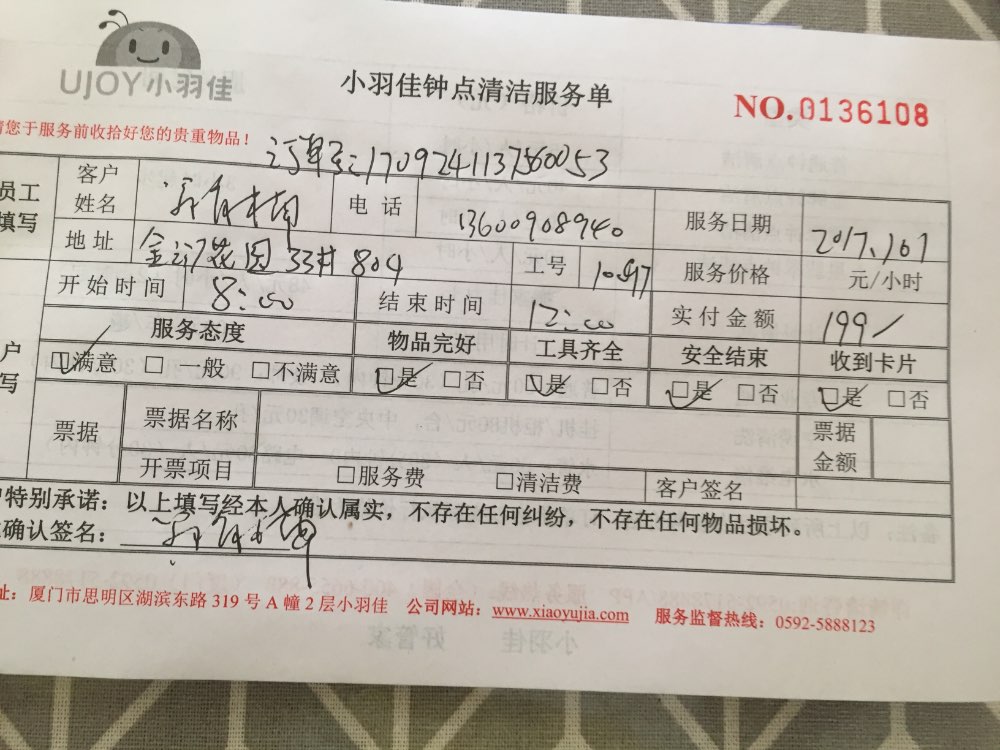 UJOY小羽佳
小羽佳钟点清洁服务单
NO.0136108
请您于服务前收拾好您的贵重物品！
订单号:1709241137560053
员工填写
客户姓名
电话 13600908940
服务日期 2017.10.1
地址 33 804
工号
服务价格 元/小时
开始时间 8:00
结束时间 12:00
实付金额 199/
服务态度 物品完好 工具齐全 安全结束 收到卡片
☑满意 □一般 □不满意 ☑是 □否 ☑是 □否 ☑是 □否 ☑是 □否
票据 票据名称 票据金额
开票项目 □服务费 □清洁费 客户签名
特别承诺：以上填写经本人确认属实，不存在任何纠纷，不存在任何物品损坏。
确认签名：
址：厦门市思明区湖滨东路319号A幢2层小羽佳 公司网站：www.xiaoyujia.com 服务监督热线：0592-5888123